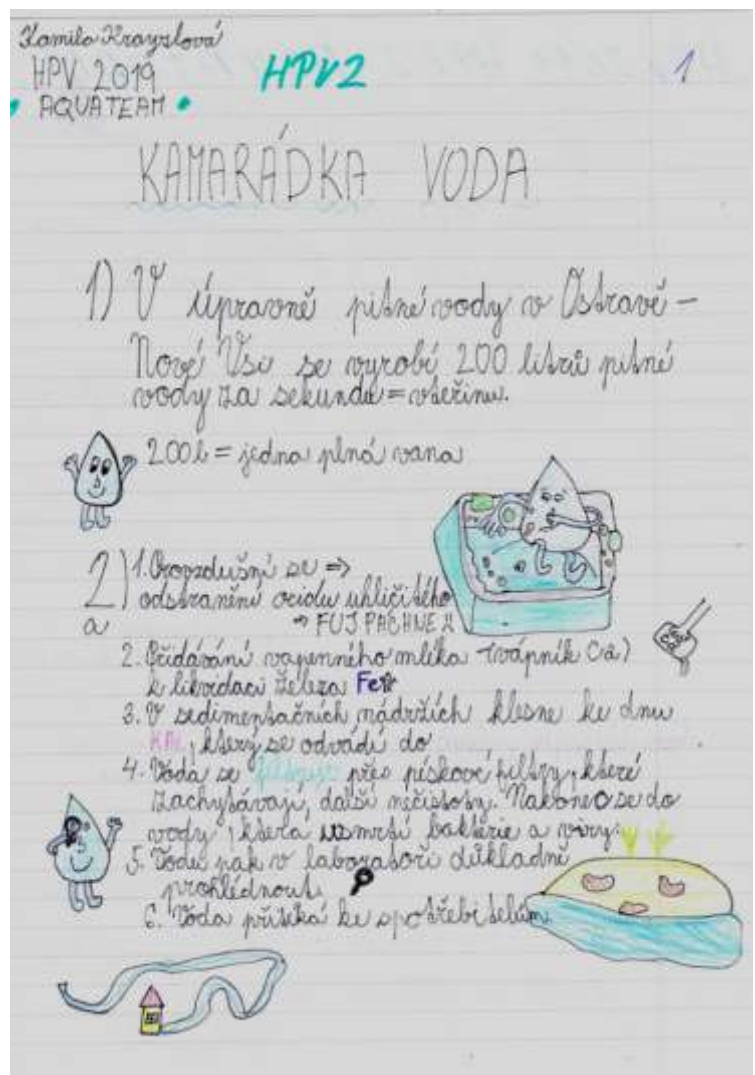 Kamila Krayzlová
HPV 2019 HPV2 1
• AQUATEAM •
KAMARÁDKA VODA
1) V úpravně pitné vody v Ostravě –
Nové Vsi se vyrobí 200 litrů pitné
vody za sekundu = vteřinu.
200 l = jedna plná vana
2) 1. Provzdušní se ⇒
a odstranění oxidu uhličitého
⇒ FUJ PÁCHNE
2. Přidávání vapenného mléka (vápník Ca)
k likvidaci železa Fe
3. V sedimentačních nádržích klesne ke dnu
KAL, který se odvádí do
4. Voda se filtruje přes pískové filtry, které
zachytávají, další nečistoty. Nakonec se do
vody, ktera usmrtí bakterie a viry.
5. Vodu pak v laboratoři důkladně
prohlédnout.
6. Voda přitéká ke spotřebitelům